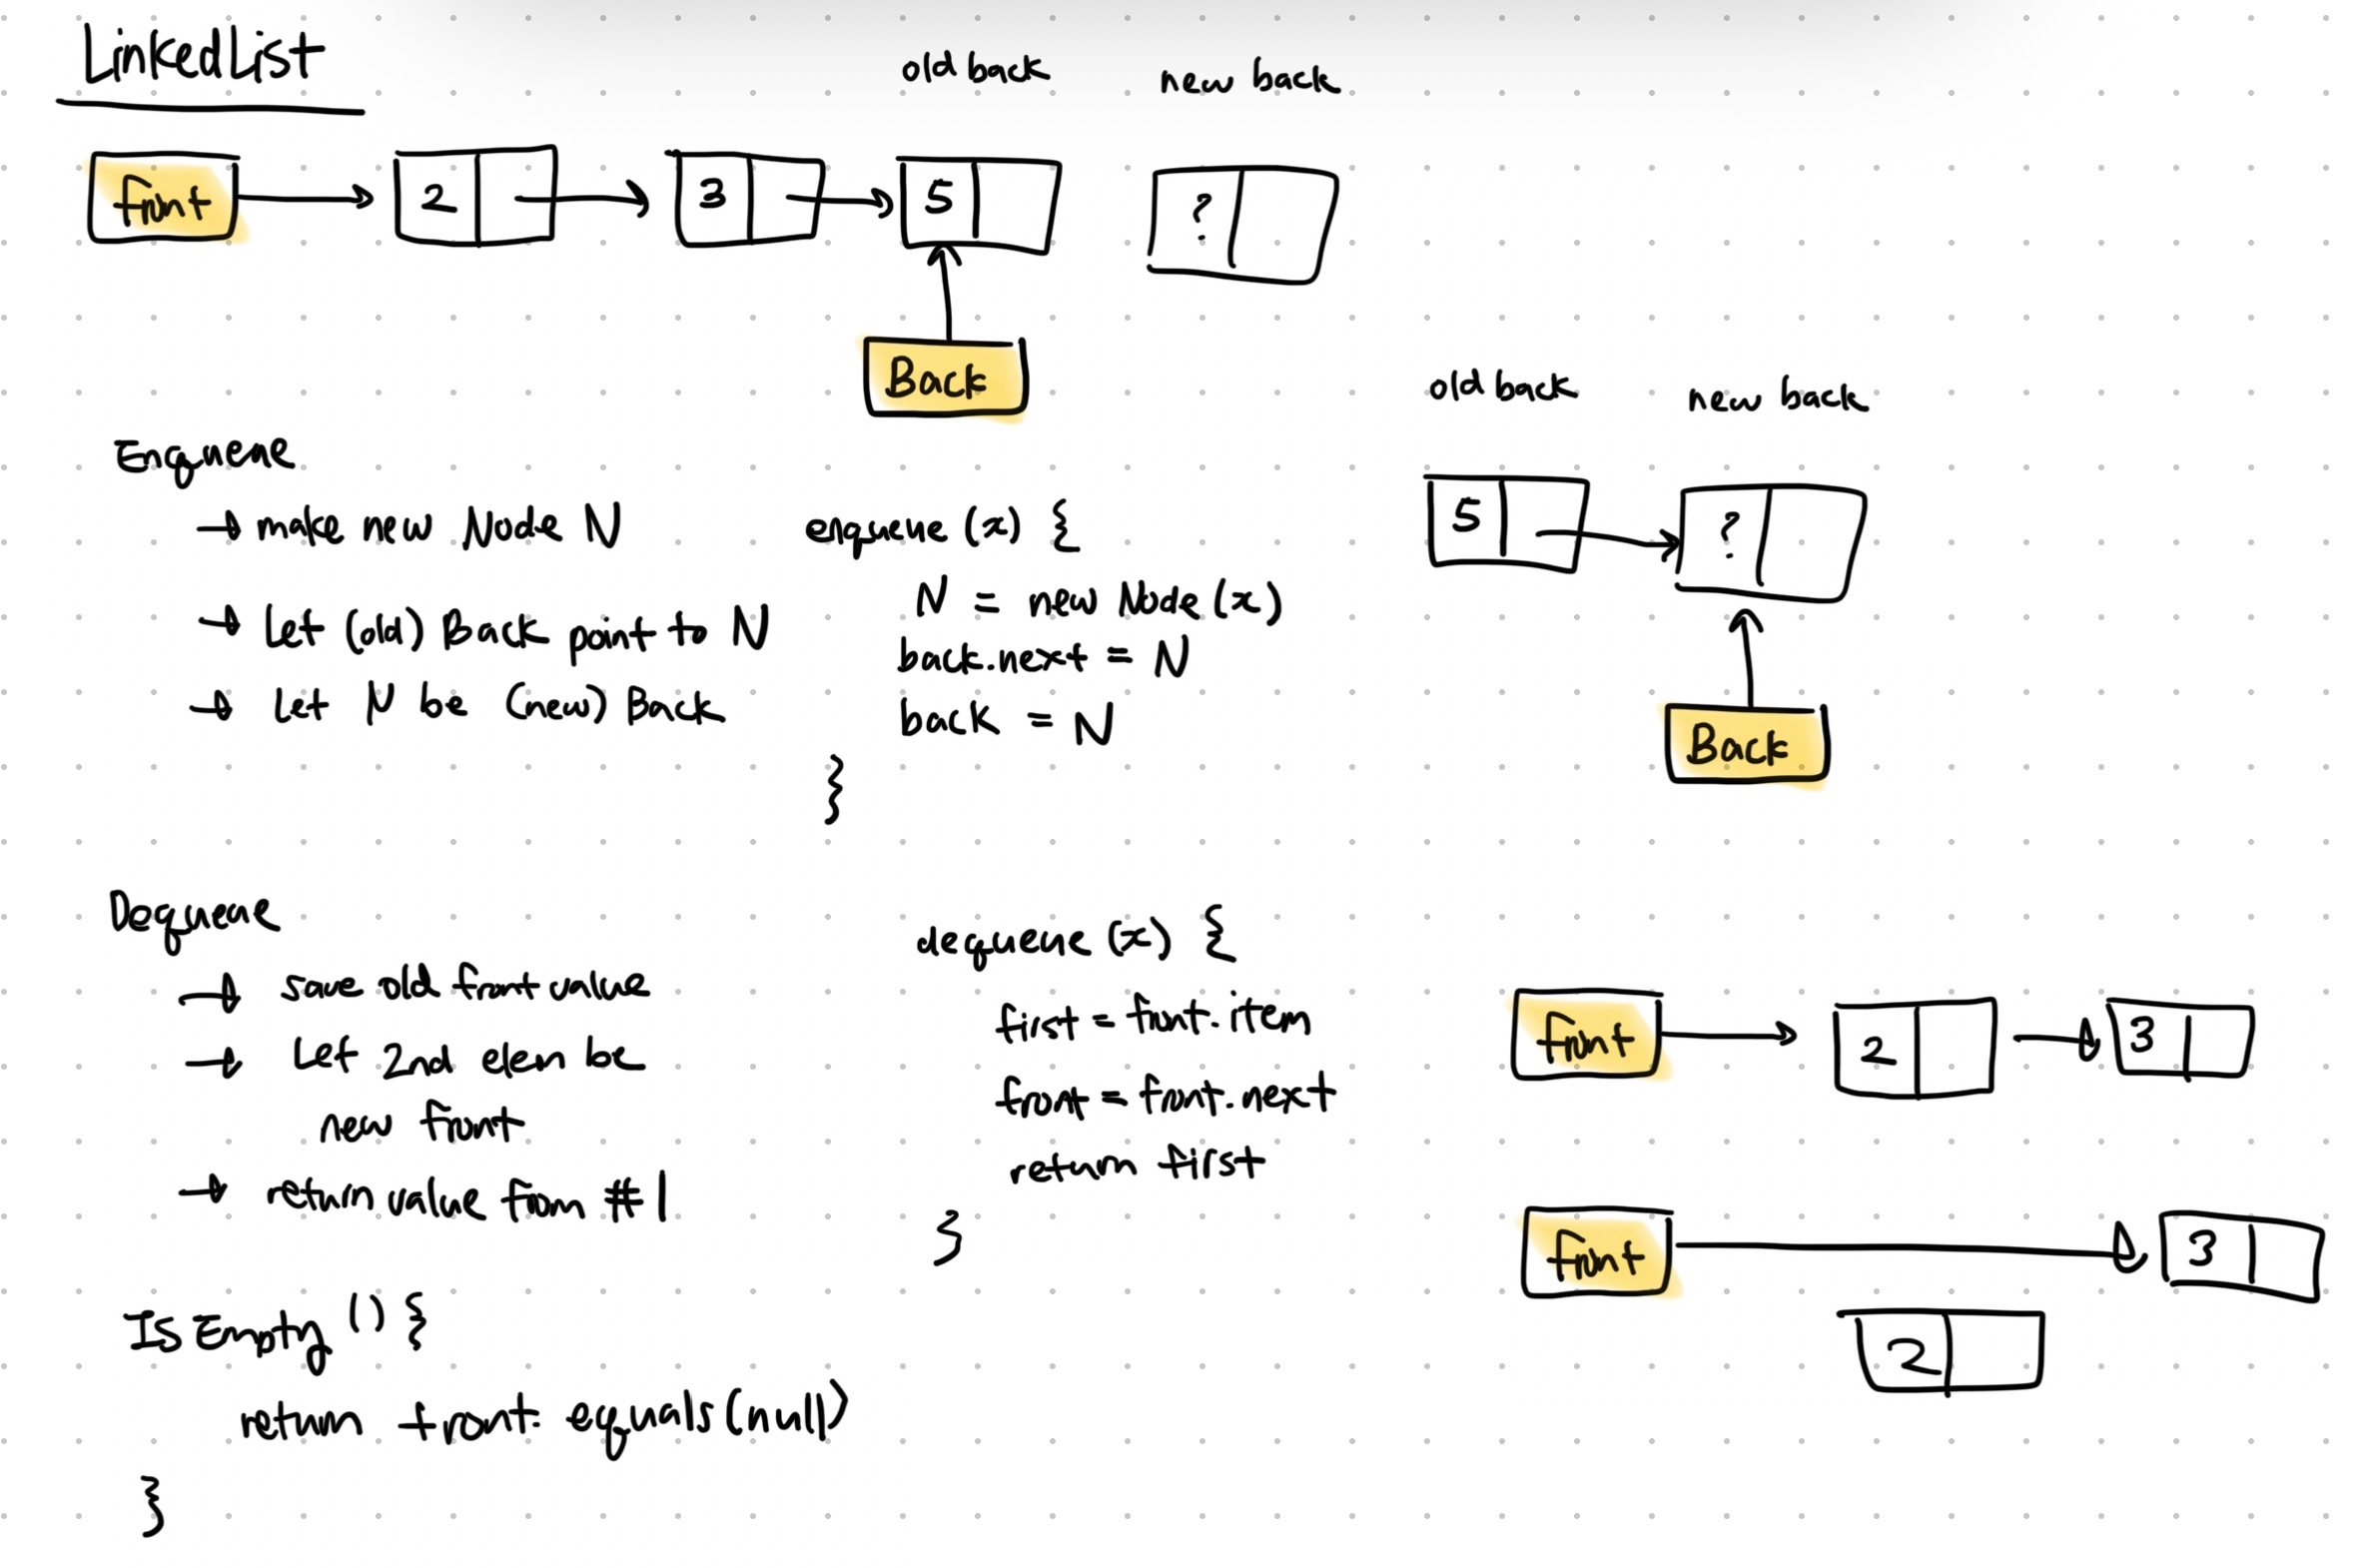 LinkedList
old back new back
front 2 3 5 ?
Back
old back new back
5 ?
Back
Enqueue
→ make new Node N
→ Let (old) Back point to N
→ Let N be (new) Back
enqueue (x) {
N = new Node (x)
back.next = N
back = N
}
Dequeue
→ save old front value
→ Let 2nd elem be
new front
→ return value from #1
dequeue (x) {
first = front.item
front = front.next
return first
}
front 2 3
front 3
2
Is Empty () {
return front.equals(null)
}